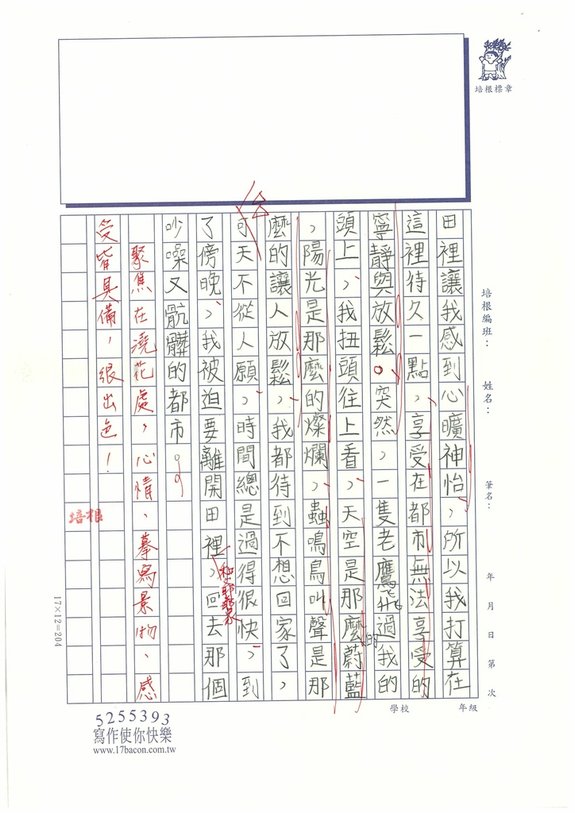 培根標章
培根編班：
姓名：
筆名：
年 月 日 第 次
學校
年級
田裡讓我感到心曠神怡，所以我打算在
這裡待久一點，享受在都市無法享受的
寧靜與放鬆。突然，一隻老鷹飛過我的
頭上，我扭頭往上看，天空是那麼的蔚藍
，陽光是那麼的燦爛，蟲鳴鳥叫聲是那
麼的讓人放鬆，我都待到不想回家了，
可天不從人願，時間總是過得很快，到
了傍晚，我被迫要離開田裡，回去那個
吵噪又骯髒的都市。
聚焦在澆花處，心情、摹寫景物、感
受皆具備，很出色！
培根
17×12=204
5255393
寫作使你快樂
www.17bacon.com.tw